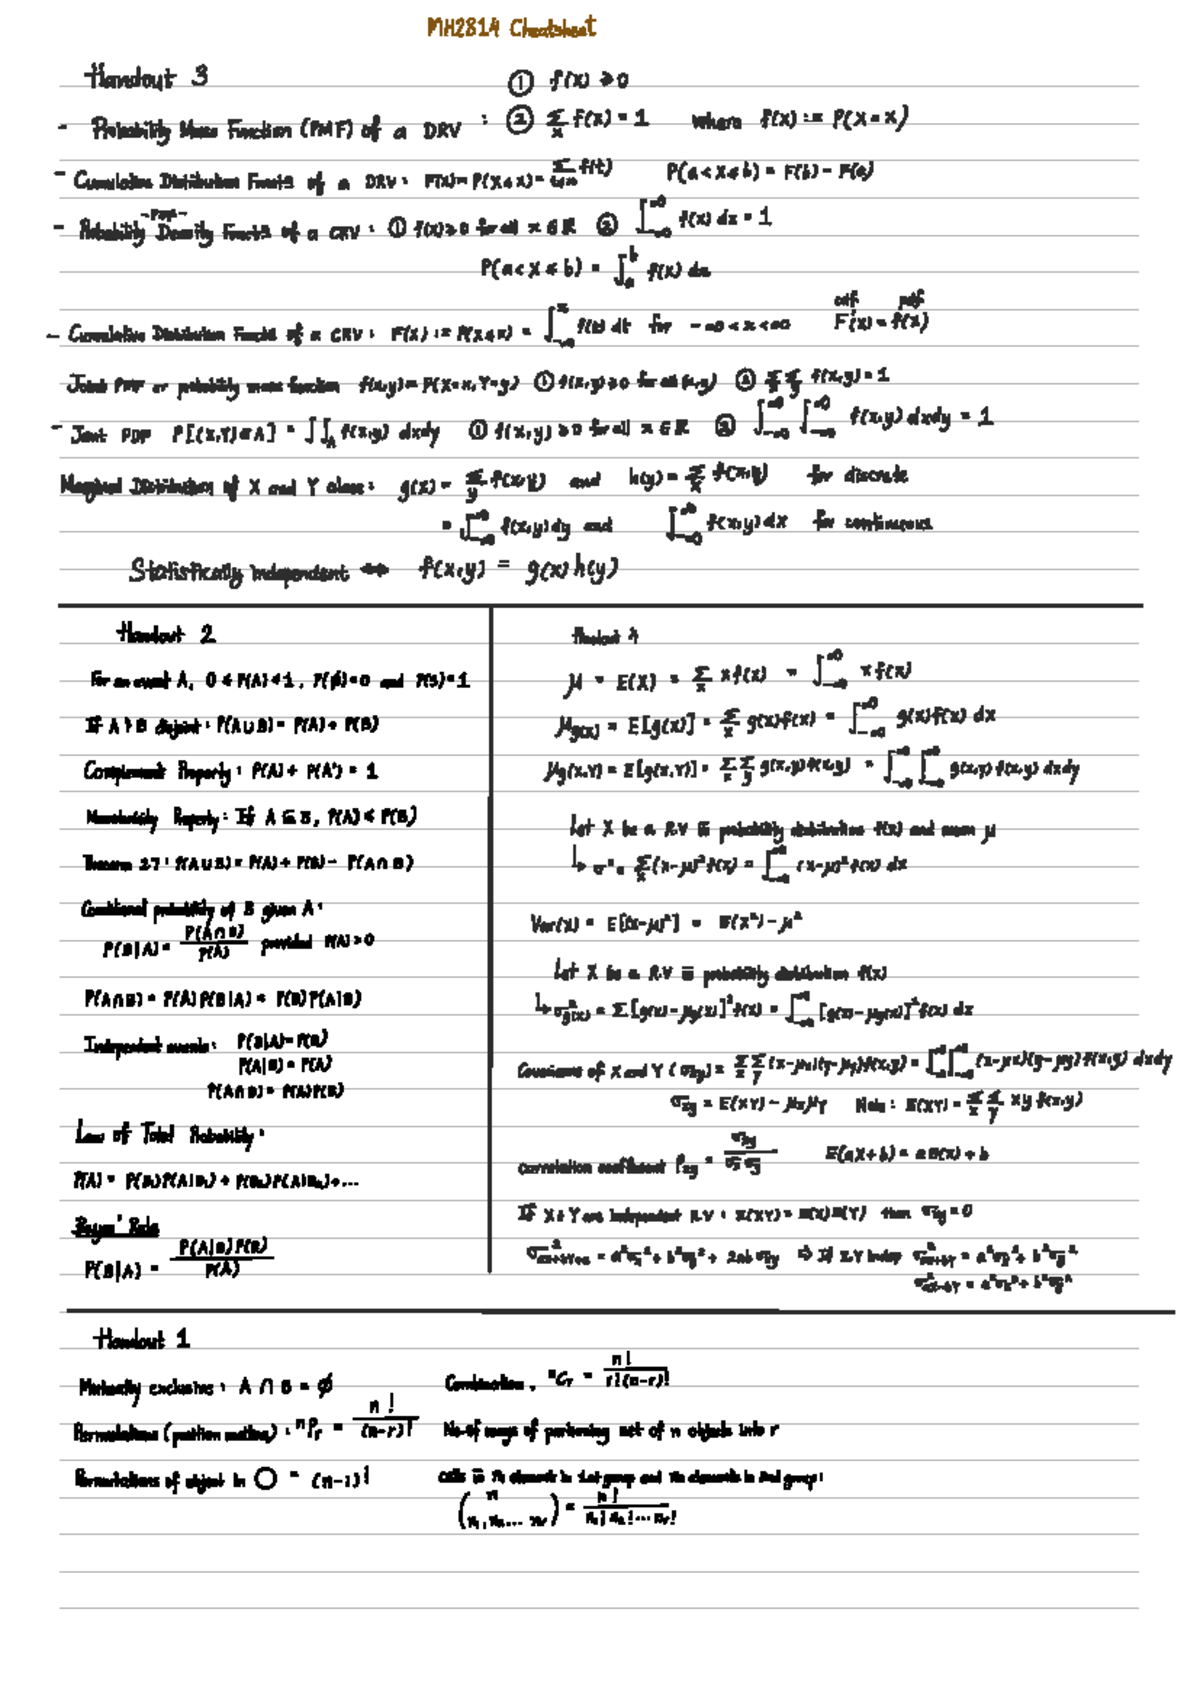 MH2814 Cheatsheet
Handout 3
① f(x) ≥ 0
- Probability Mass Function (PMF) of a DRV : ② Σ_x f(x) = 1 where f(x) := P(X = x)
- Cumulative Distribution Functn of a DRV : F(x) = P(X ≤ x) = Σ_{t≤x} f(t) P(a < X ≤ b) = F(b) - F(a)
- Probability Density Functn of a CRV : ① f(x) ≥ 0 for all x ∈ R ② ∫_{-∞}^{∞} f(x) dx = 1
P(a < X ≤ b) = ∫_a^b f(x) dx
cdf pdf
- Cumulative Distribution Functn of a CRV : F(x) := P(X ≤ x) = ∫_{-∞}^{x} f(t) dt for -∞ < x < ∞ F'(x) = f(x)
Joint PMF or probability mass function f(x,y) = P(X=x, Y=y) ① f(x,y) ≥ 0 for all (x,y) ② Σ_x Σ_y f(x,y) = 1
- Joint PDF P[(X,Y) ∈ A] = ∫∫_A f(x,y) dxdy ① f(x,y) ≥ 0 for all x ∈ R ② ∫_{-∞}^{∞} ∫_{-∞}^{∞} f(x,y) dxdy = 1
Marginal Distribution of X and Y alone : g(x) = Σ_y f(x,y) and h(y) = Σ_x f(x,y) for discrete
= ∫_{-∞}^{∞} f(x,y) dy and ∫_{-∞}^{∞} f(x,y) dx for continuous
Statistically Independent ⇔ f(x,y) = g(x) h(y)
Handout 2
For an event A, 0 ≤ P(A) ≤ 1, P(∅) = 0 and P(S) = 1
If A & B disjoint : P(A∪B) = P(A) + P(B)
Complement Property : P(A) + P(A') = 1
Monotonicity Property : If A ⊆ B, P(A) ≤ P(B)
Theorem 2.7 : P(A∪B) = P(A) + P(B) - P(A∩B)
Conditional probability of B given A :
P(B|A) = P(A∩B) / P(A) provided P(A) > 0
P(A∩B) = P(A)P(B|A) = P(B)P(A|B)
Independent events : P(B|A) = P(B)
P(A|B) = P(A)
P(A∩B) = P(A)P(B)
Law of Total Probability :
P(A) = P(B₁)P(A|B₁) + P(B₂)P(A|B₂) + ...
Bayes' Rule
P(B|A) = P(A|B)P(B) / P(A)
Handout 4
μ = E(X) = Σ_x x f(x) = ∫_{-∞}^{∞} x f(x)
μ_{g(x)} = E[g(x)] = Σ_x g(x)f(x) = ∫_{-∞}^{∞} g(x)f(x) dx
μ_{g(x,Y)} = E[g(x,Y)] = Σ_x Σ_y g(x,y) f(x,y) = ∫_{-∞}^{∞} ∫_{-∞}^{∞} g(x,y) f(x,y) dxdy
Let X be a R.V probability distribution f(x) and mean μ
↳ σ² = Σ_x (x-μ)² f(x) = ∫_{-∞}^{∞} (x-μ)² f(x) dx
Var(x) = E[(x-μ)²] = E(X²) - μ²
Let X be a R.V probability distribution f(x)
↳ σ²_{g(x)} = Σ [g(x) - μ_{g(x)}]² f(x) = ∫_{-∞}^{∞} [g(x) - μ_{g(x)}]² f(x) dx
Covariance of X and Y (σ_{xy}) = Σ_x Σ_y (x-μ_x)(y-μ_y) f(x,y) = ∫_{-∞}^{∞} ∫_{-∞}^{∞} (x-μ_x)(y-μ_y) f(x,y) dxdy
σ_{xy} = E(XY) - μ_X μ_Y Note : E(XY) = Σ_x Σ_y xy f(x,y)
correlation coefficient ρ_{xy} = σ_{xy} / σ_x σ_y E(aX+b) = aE(x) + b
If X & Y are Independent R.V : E(XY) = E(X)E(Y) then σ_{xy} = 0
σ²_{ax+bY+c} = a²σ_x² + b²σ_y² + 2ab σ_{xy} ⇒ If X,Y indep σ²_{ax+bY} = a²σ_x² + b²σ_y²
σ²_{ax-bY} = a²σ_x² + b²σ_y²
Handout 1
Mutually exclusive : A ∩ B = ∅
Permutations (position matters) : ⁿPᵣ = n! / (n-r)!
Permutations of object in ○ = (n-1)!
Combination, ⁿCᵣ = n! / r!(n-r)!
No. of ways of partioning set of n objects into r
cells n₁ elements in 1st group and n₂ elements in 2nd group :
(n / n₁, n₂ ... nᵣ) = n! / n₁! n₂! ... nᵣ!